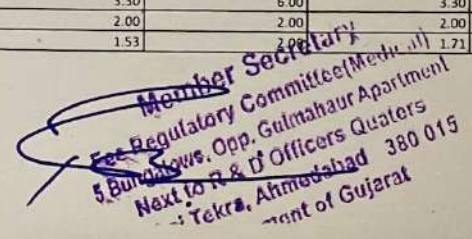 3.30 6.00 3.30
2.00 2.00 2.00
1.53 1.71
Member Secretary
Fee Regulatory Committee(Medical)
5, Bungalows, Opp. Gulmahaur Apartment
Next to R & D Officers Quaters
Tekra, Ahmedabad 380 015
of Gujarat